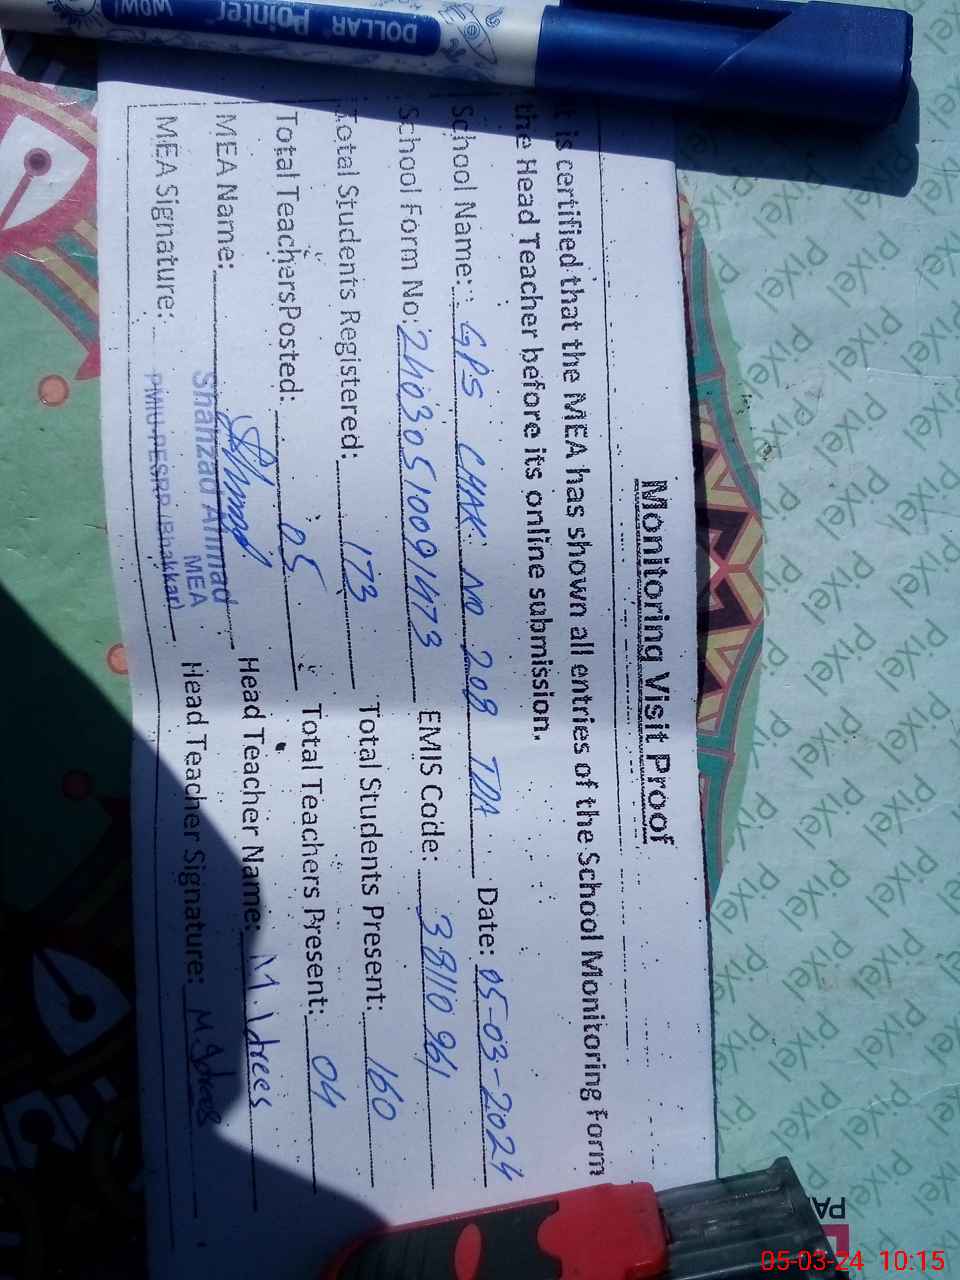 Monitoring Visit Proof
It is certified that the MEA has shown all entries of the School Monitoring Form
the Head Teacher before its online submission.
School Name: GPS CHAK NO 208 TDA Date: 05-03-2024
School Form No: 24030510091473 EMIS Code: 38110961
Total Students Registered: 173 Total Students Present: 160
Total Teachers Posted: 05 Total Teachers Present: 04
MEA Name: Shahzad Ahmad Head Teacher Name: M. Idrees
MEA
MEA Signature: PMIU-PESRP (Bhakkar) Head Teacher Signature: M. Idrees
DOLLAR Pointer
WOW!
Pixel
05-03-24 10:15